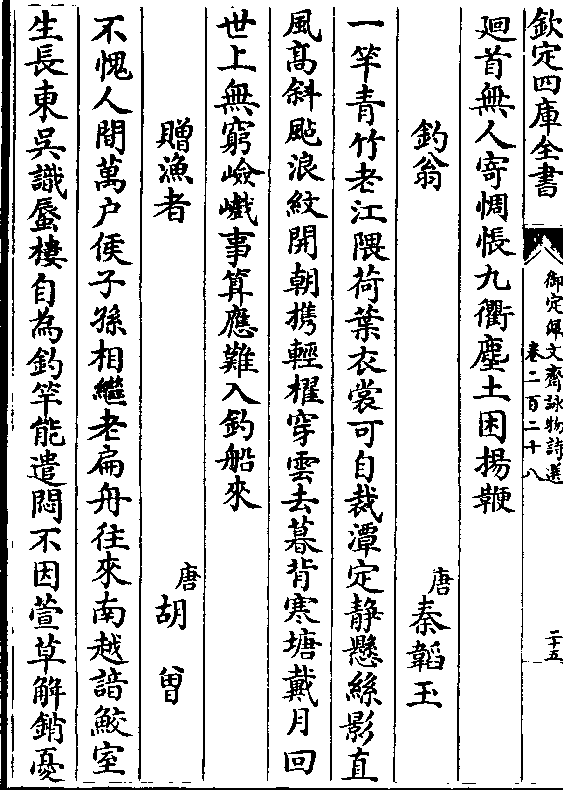 欽定四庫全書
御定佩文齋詠物詩選
卷二百二十八
二十五
廻首無人寄惆悵九衢塵土困揚鞭
釣翁
唐秦韜玉
一竿青竹老江隈荷葉衣裳可自裁潭定静懸絲影直
風高斜颭浪紋開朝携輕櫂穿雲去暮背寒塘戴月回
世上無窮嶮巇事算應難入釣船來
贈漁者
唐胡曾
不愧人間萬户侯子孫相繼老扁舟往來南越諳鮫室
生長東吳識蜃樓自為釣竿能遣悶不因萱草解銷憂